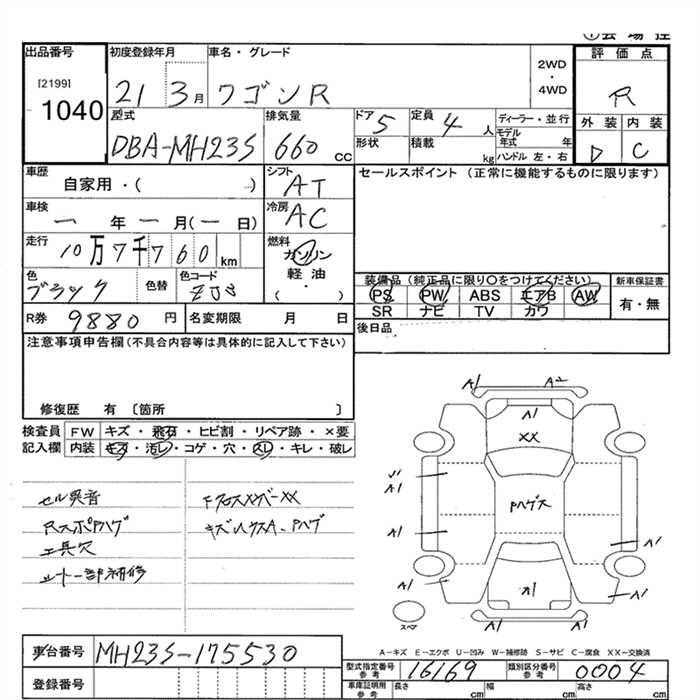 出品番号 初度登録年月 車名・グレード 2WD・4WD 評価点
[2199] 1040 21 3月 ワゴンR R
外装 内装
D C
型式 排気量 ドア 5 定員 4人 ディーラー・並行
DBA-MH23S 660cc 形状 積載 kg モデル年式 年 ハンドル 左・右
車歴 自家用・( ) シフト AT
セールスポイント (正常に機能するものに限ります)
車検 一年一月(一日) 冷房 AC
走行 10万7千760km 燃料 ガソリン 軽油・( )
色 ブラック 色替 色コード ZJ3
装備品(純正品に限り○をつけてください) 新車保証書
PS PW ABS エアB AW 有・無
SR ナビ TV カワ
R券 9880円 名変期限 月 日 後日品
注意事項申告欄(不具合内容等は具体的に記入して下さい)
修復歴 有 〔箇所 〕
検査員 FW キズ・飛石・ヒビ割・リペア跡・×要
記入欄 内装 キズ・汚レ・コゲ・穴・スレ・キレ・破レ
セル異音
RスポPハゲ
工具欠
シート一部補修
FクロスメンバーXX
キズハクスA、Pハゲ
A1 A2
A1
XX
A1
Pハゲ大
A1 A1
A1 A1 A1
A1
スペア
A-キズ E-エクボ U-凹み W-補修跡 S-サビ C-腐食 XX-交換済
車台番号 MH23S-175530
型式指定番号 参考 16169 類別区分番号 参考 0004
登録番号
車庫証明用 参考 長さ cm 幅 cm 高さ cm